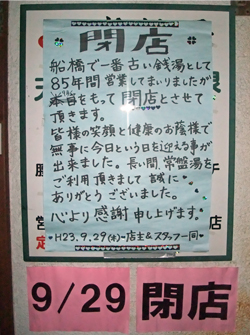 閉店
船橋で一番古い銭湯として
85年間営業してまいりましたが
本日をもって閉店とさせて
頂きます。
皆様の笑顔と健康のお蔭様で
無事に今日という日を迎える事が
出来ました。長い間常盤湯を
ご利用頂きまして誠に
ありがとうございました。
心より感謝申し上げます。
H23.9.29(木)-店主&スタッフ一同
営
定
店
9/29 閉店